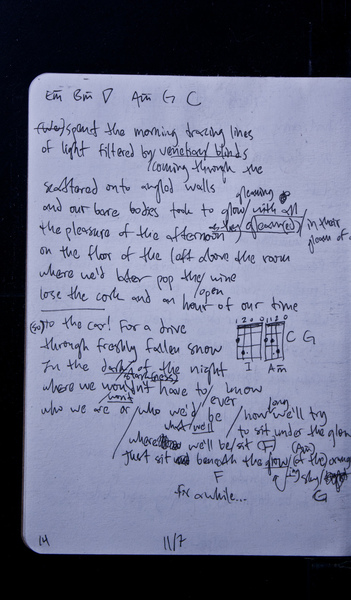 Em Bm D Am G C
(We) spent the morning tracing lines
of light filtered by venetian blinds
/coming through the
scattered onto angled walls
gleaming
and our bare bodies took to glow/with all
the pleasure of the afternoon gleam(ed)/in their gleam of
on the floor of the loft above the room
where we'd later pop the wine
/open
lose the cork and an hour of our time
(so) to the car! For a drive
through freshly fallen snow
1 2 0 0 1 2 0 C G
I Am
In the dark of the night
/starkness)
where we wouldn't have to/know
won't /ever long
who we are or/who we'd/be /how we'll try
we'll to sit under the glow
where we'll be/sit (F) (Am)
just sit beneath the glow/of the orange
F sky
for a while... G
14 11/7